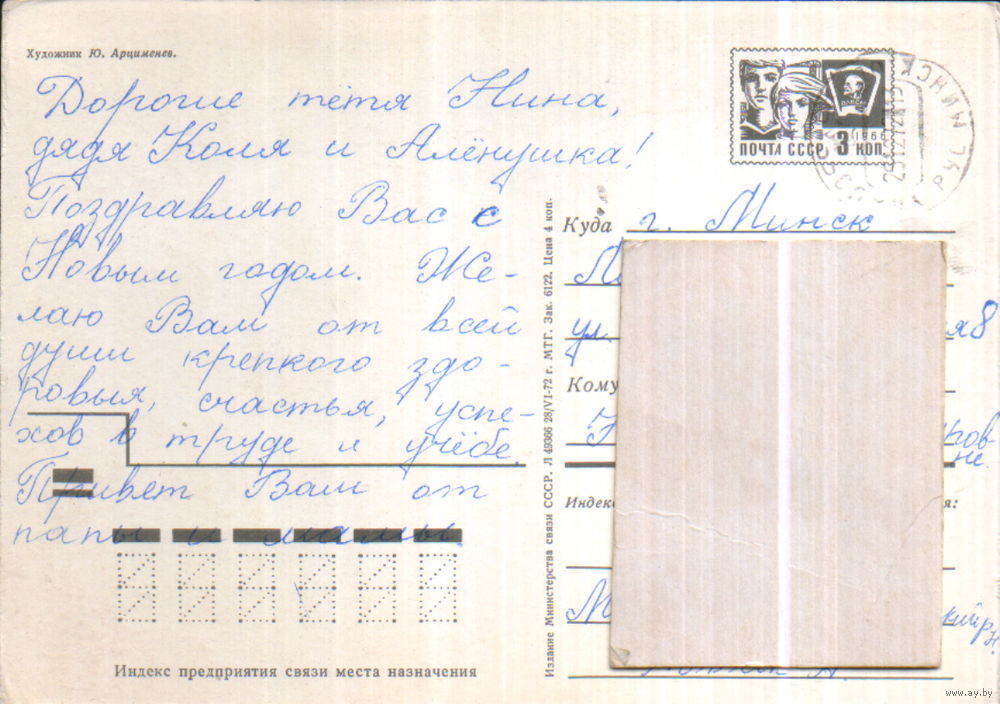 Художник Ю. Арцименев.
Дорогие тётя Нина,
дядя Коля и Алёнушка!
Поздравляю Вас с
Новым годом. Же-
лаю Вам от всей
души крепкого здо-
ровья, счастья, успе-
хов в труде и учёбе.
Привет Вам от
папы и мамы.
Индекс предприятия связи места назначения
Издание Министерства связи СССР. Л 49366 28/VI-72 г. МТГ. Зак. 6122. Цена 4 коп.
ВЛКСМ
1966
ПОЧТА СССР 3 КОП
МИНСК
Куда г. Минск
ул.
Кому
www.ay.by